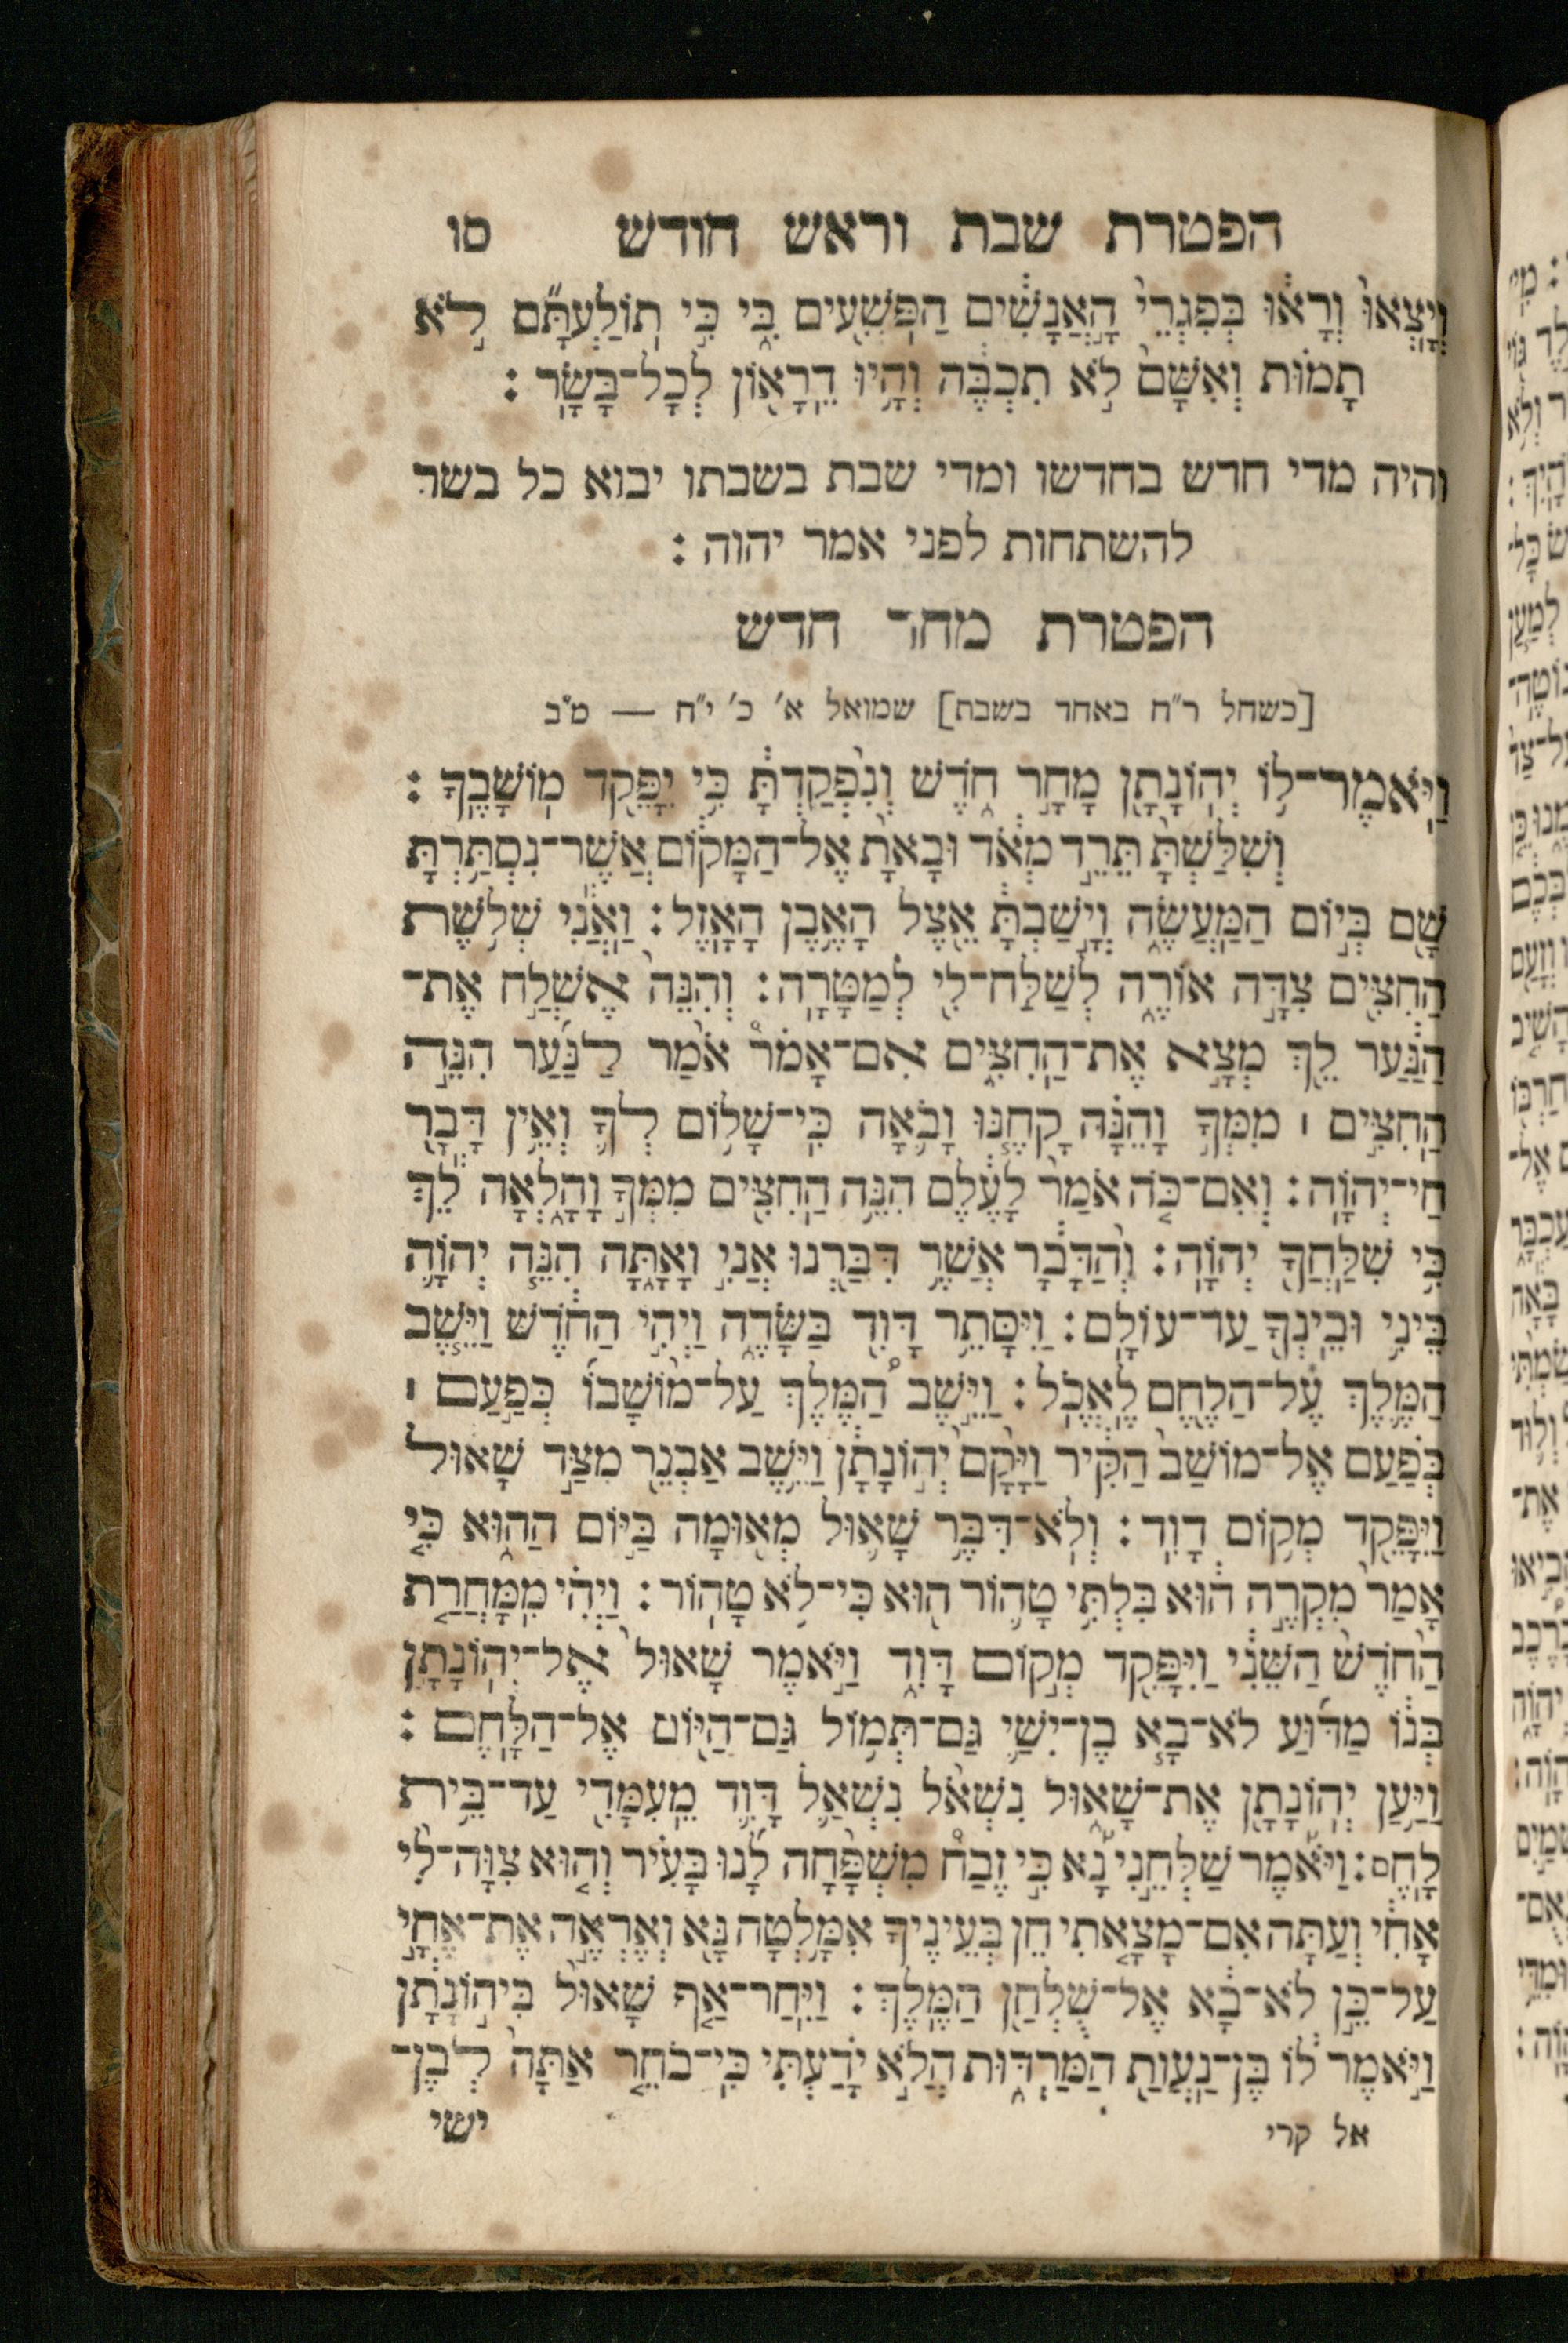 הפטרת שבת וראש חודש סו
וְיָצְא֣וּ וְרָא֔וּ בְּפִגְרֵי֙ הָאֲנָשִׁ֔ים הַפֹּשְׁעִ֖ים בִּ֑י כִּ֣י תֽוֹלַעְתָּ֞ם לֹ֣א
תָמ֗וּת וְאִשָּׁם֙ לֹ֣א תִכְבֶּ֔ה וְהָי֥וּ דֵֽרָא֖וֹן לְכָל־בָּשָֽׂר :
והיה מדי חדש בחדשו ומדי שבת בשבתו יבוא כל בשר
להשתחות לפני אמר יהוה :
הפטרת מחר חדש
[כשחל ר״ח באחד בשבת] שמואל א׳ כ׳ י״ח — מ״ב
וַיֹּֽאמֶר־ל֥וֹ יְהֽוֹנָתָ֖ן מָחָ֣ר חֹ֑דֶשׁ וְנִ֨פְקַדְתָּ֔ כִּ֥י יִפָּקֵ֖ד מֽוֹשָׁבֶֽךָ :
וְשִׁלַּשְׁתָּ֙ תֵּרֵ֣ד מְאֹ֔ד וּבָאתָ֙ אֶל־הַמָּק֔וֹם אֲשֶׁר־נִסְתַּ֥רְתָּ
שָּׁ֖ם בְּי֣וֹם הַֽמַּעֲשֶׂ֑ה וְיָ֣שַׁבְתָּ֔ אֵ֖צֶל הָאֶ֥בֶן הָאָֽזֶל : וַאֲנִ֕י שְׁלֹ֥שֶׁת
הַחִצִּ֖ים צִדָּ֣ה אוֹרֶ֑ה לְשַֽׁלַּֽח־לִ֖י לְמַטָּרָֽה : וְהִנֵּה֙ אֶשְׁלַ֣ח אֶת־
הַנַּ֔עַר לֵ֖ךְ מְצָ֣א אֶת־הַֽחִצִּ֑ים אִם־אָמֹר֩ אֹמַ֨ר לַנַּ֜עַר הִנֵּ֥ה
הַֽחִצִּ֣ים ׀ מִמְּךָ֣ וָהֵ֗נָּה קָחֶ֧נּוּ וָבֹ֛אָה כִּֽי־שָׁל֥וֹם לְךָ֛ וְאֵ֥ין דָּבָ֖ר
חַי־יְהוָֽה : וְאִם־כֹּ֤ה אֹמַר֙ לָעֶ֔לֶם הִנֵּ֥ה הַחִצִּ֖ים מִמְּךָ֣ וָהָ֑לְאָה לֵ֕ךְ
כִּ֥י שִֽׁלַּחֲךָ֖ יְהוָֽה : וְהַ֨דָּבָ֔ר אֲשֶׁ֥ר דִּבַּ֖רְנוּ אֲנִ֣י וָאָ֑תָּה הִנֵּ֧ה יְהוָ֛ה
בֵּינִ֥י וּבֵינְךָ֖ עַד־עוֹלָֽם : וַיִּסָּתֵ֥ר דָּוִ֖ד בַּשָּׂדֶ֑ה וַיְהִ֣י הַחֹ֔דֶשׁ וַיֵּ֧שֶׁב
הַמֶּ֛לֶךְ עַל־הַלֶּ֖חֶם לֶֽאֱכֽוֹל : וַיֵּ֣שֶׁב הַ֠מֶּלֶךְ עַל־מ֨וֹשָׁב֜וֹ כְּפַ֣עַם ׀
בְּפַ֗עַם אֶל־מוֹשַׁב֙ הַקִּ֔יר וַיָּ֙קָם֙ יְה֣וֹנָתָ֔ן וַיֵּ֥שֶׁב אַבְנֵ֖ר מִצַּ֣ד שָׁא֑וּל
וַיִּפָּקֵ֖ד מְק֥וֹם דָּוִֽד : וְלֹֽא־דִבֶּ֥ר שָׁא֛וּל מְא֖וּמָה בַּיּ֣וֹם הַה֑וּא כִּ֤י
אָמַר֙ מִקְרֶ֣ה ה֔וּא בִּלְתִּ֥י טָה֛וֹר ה֖וּא כִּֽי־לֹ֥א טָהֽוֹר : וַיְהִ֗י מִֽמָּחֳרַ֤ת
הַחֹ֙דֶשׁ֙ הַשֵּׁנִ֔י וַיִּפָּקֵ֖ד מְק֣וֹם דָּוִ֑ד וַיֹּ֤אמֶר שָׁאוּל֙ אֶל־יְהֽוֹנָתָ֣ן
בְּנ֔וֹ מַדּ֜וּעַ לֹא־בָ֧א בֶן־יִשַׁ֛י גַּם־תְּמ֥וֹל גַּם־הַיּ֖וֹם אֶל־הַלָּֽחֶם :
וַיַּ֥עַן יְהֽוֹנָתָ֖ן אֶת־שָׁא֑וּל נִשְׁאֹ֨ל נִשְׁאַ֥ל דָּוִ֛ד מֵעִמָּדִ֖י עַד־בֵּ֥ית
לָֽחֶם : וַיֹּ֡אמֶר שַׁלְּחֵ֣נִי נָ֡א כִּ֣י זֶבַח֩ מִשְׁפָּחָ֨ה לָ֜נוּ בָּעִ֗יר וְה֤וּא צִוָּֽה־לִי֙
אָחִ֔י וְעַתָּ֗ה אִם־מָצָ֤אתִי חֵן֙ בְּעֵינֶ֔יךָ אִמָּ֥לְטָה נָּ֖א וְאֶרְאֶ֣ה אֶת־אֶחָ֑י
עַל־כֵּ֣ן לֹא־בָ֔א אֶל־שֻׁלְחַ֖ן הַמֶּֽלֶךְ : וַיִּֽחַר־אַ֤ף שָׁאוּל֙ בִּיה֣וֹנָתָ֔ן
וַיֹּ֣אמֶר ל֔וֹ בֶּֽן־נַעֲוַ֖ת הַמַּרְדּ֑וּת הֲל֣וֹא יָדַ֗עְתִּי כִּֽי־בֹחֵ֤ר אַתָּה֙ לְבֶן־
אל קרי ישי